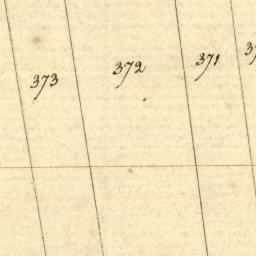 373 372 371